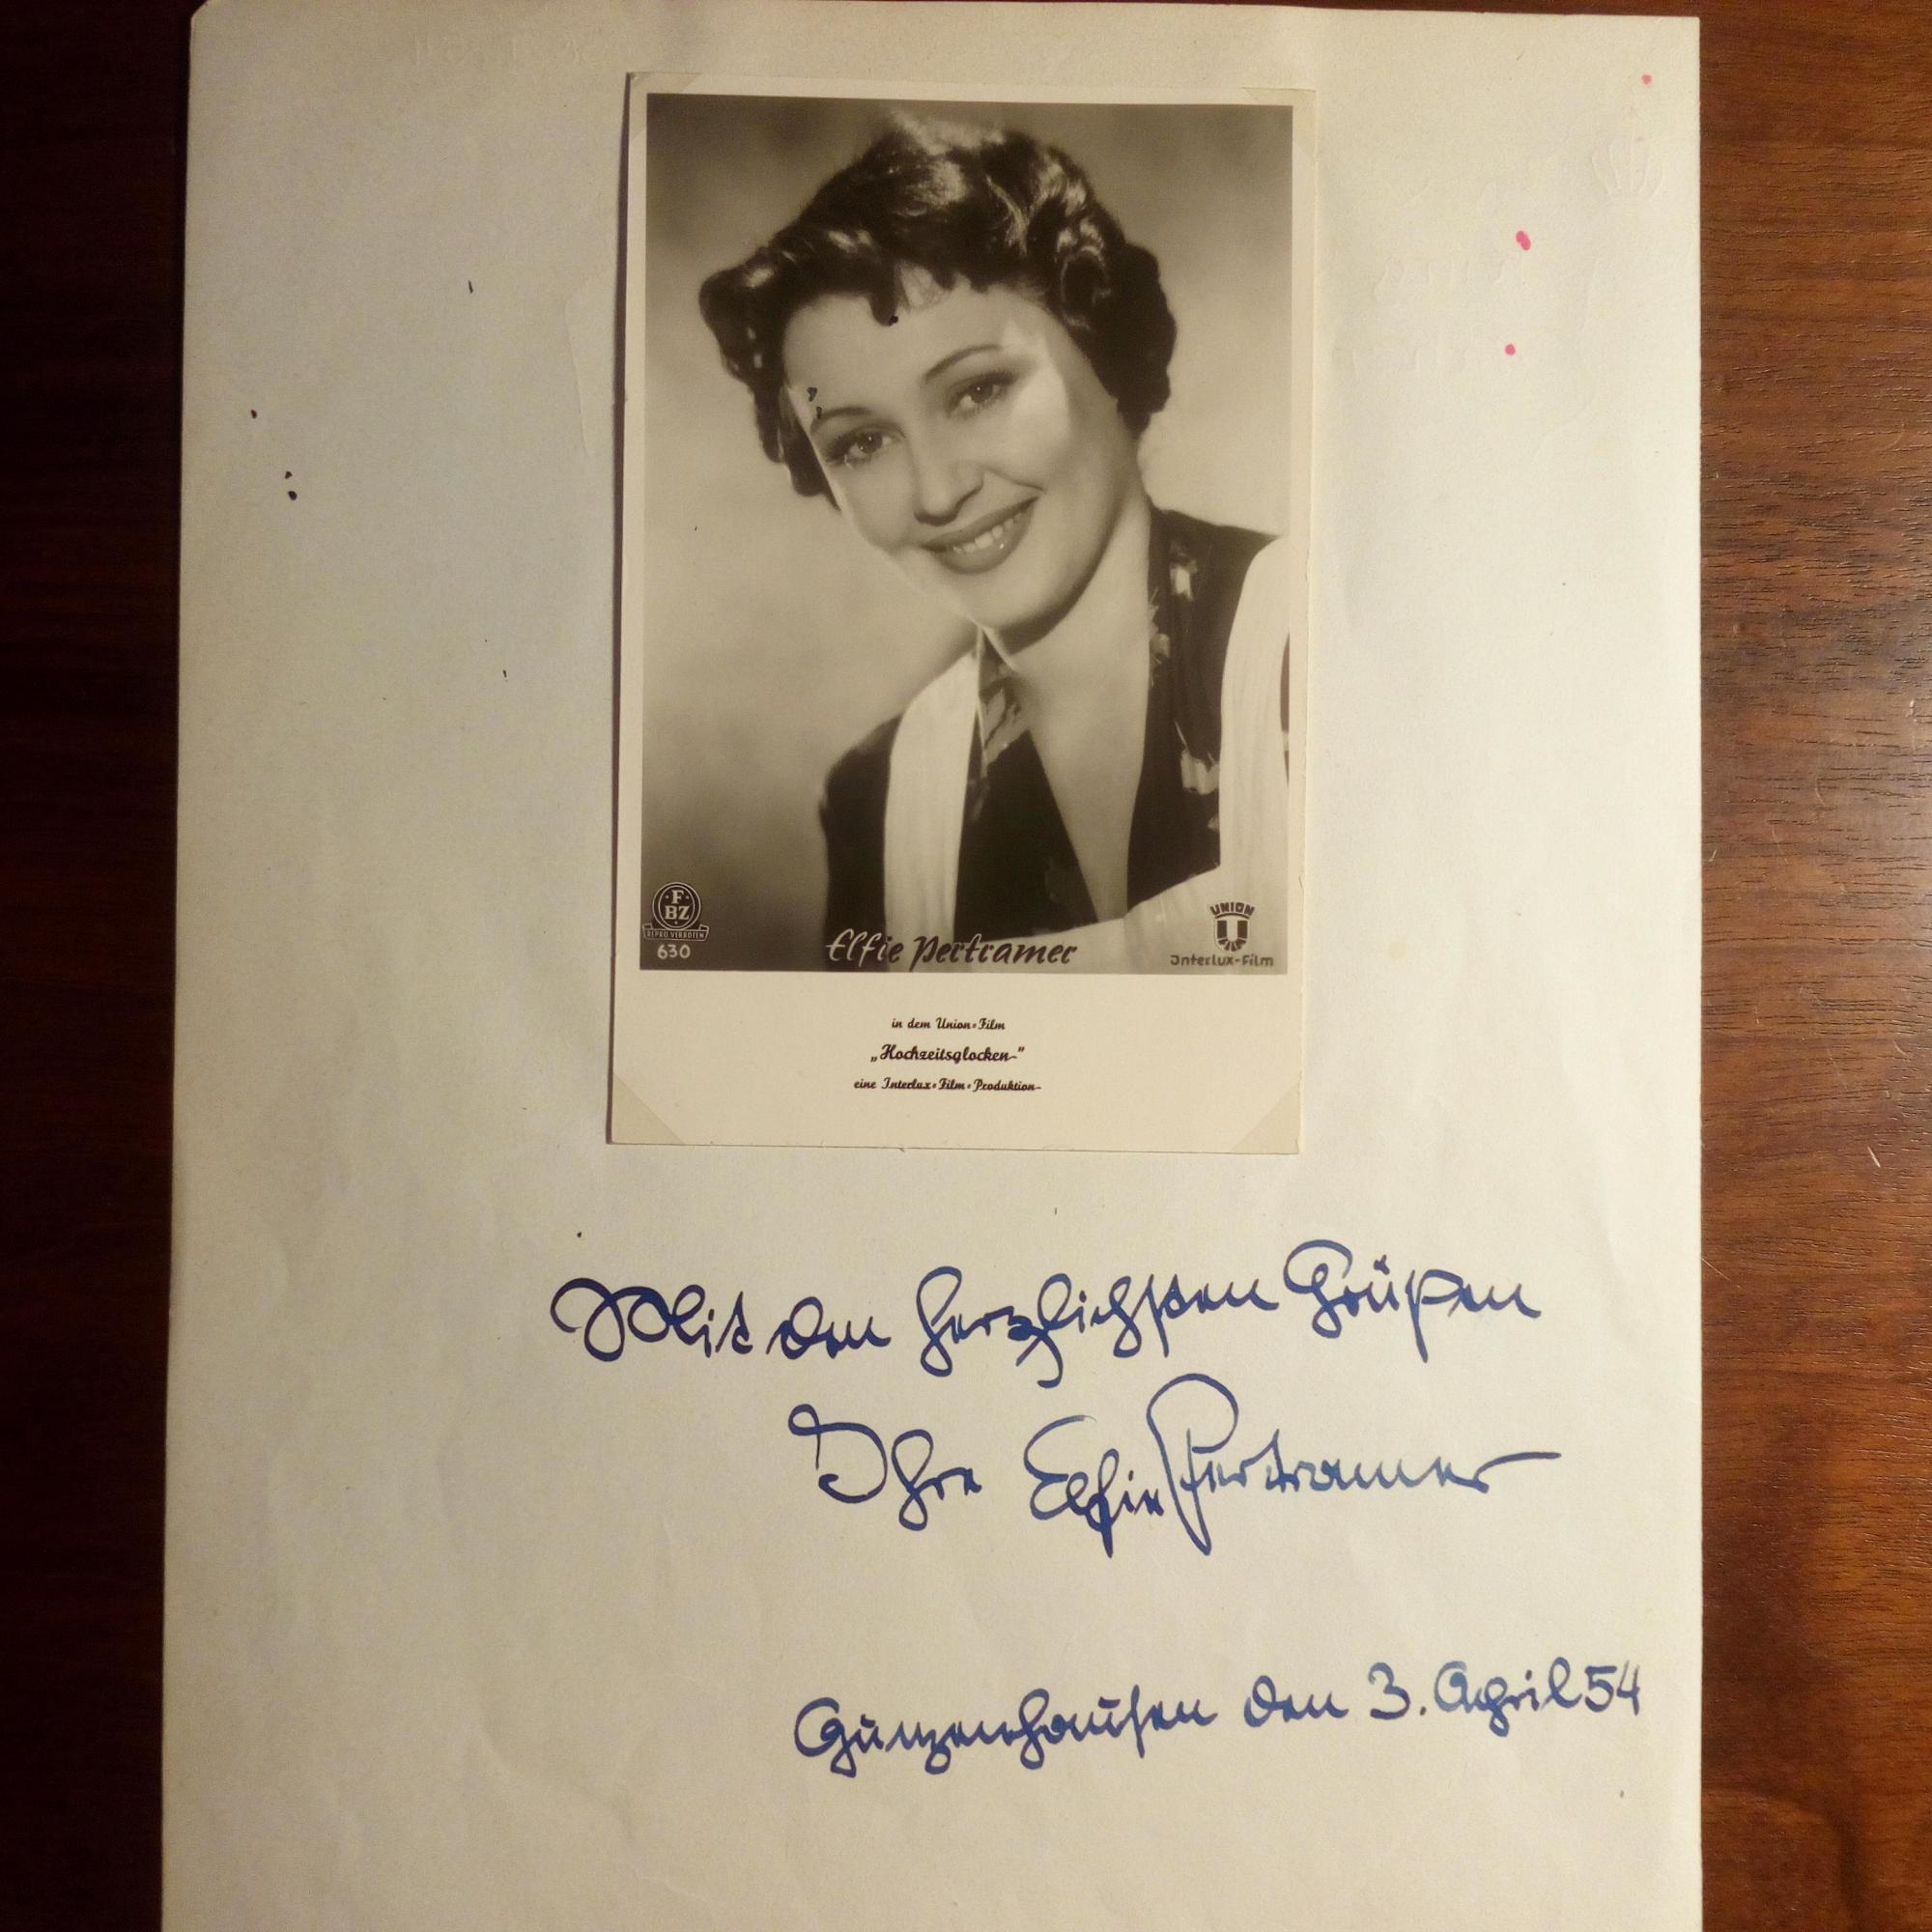 F
BZ
REPRO VERBOTEN
630
Elfie Pertramer
UNION
U
Interlux-Film
in dem Union-Film
„Hochzeitsglocken"
eine Interlux-Film-Produktion
Mit den herzlichsten Grüßen
Ihre Elfie Pertramer
Gunzenhausen den 3. April 54